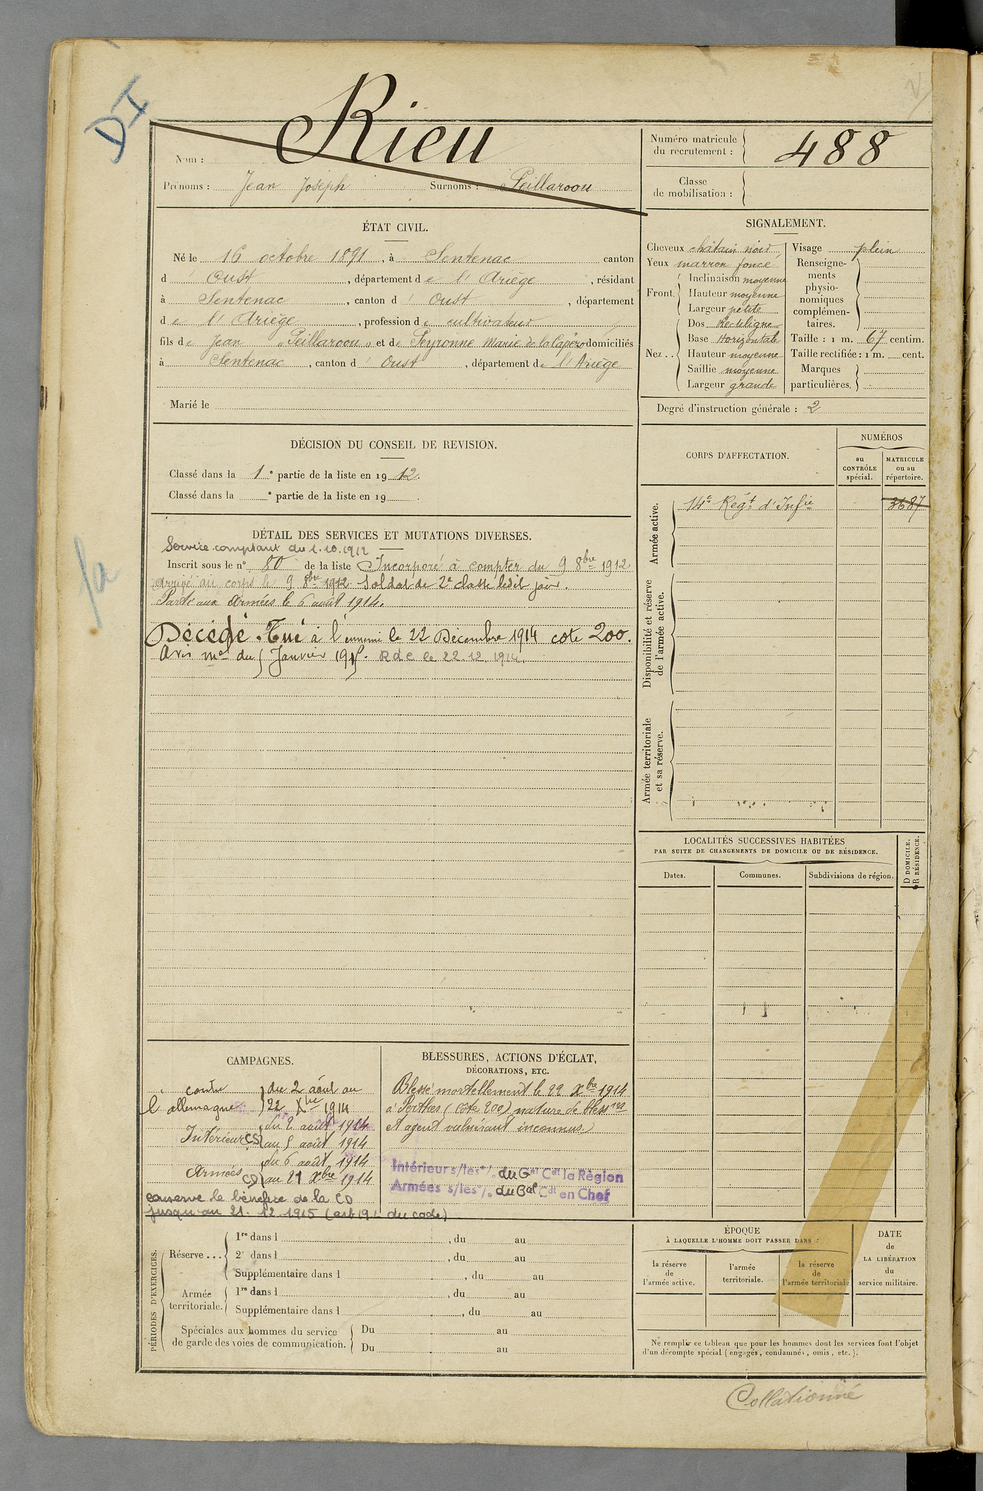 DI
Rieu
Nom :
Prénoms : Jean Joseph Surnoms : Peillaroou
Numéro matricule
du recrutement :
488
Classe
de mobilisation :
ÉTAT CIVIL.
Né le 16 octobre 1891, à Sentenac canton
d' Oust, département de l'Ariège, résidant
à Sentenac, canton d' Oust, département
de l'Ariège, profession de cultivateur
fils de Jean Peillaroou et de Peyronne Marie de la Capère domiciliés
à Sentenac, canton d' Oust, département de l'Ariège
Marié le
SIGNALEMENT.
Cheveux châtain noir
Yeux marron foncé
Front
Inclinaison moyenne
Hauteur moyenne
Largeur petite
Nez ..
Dos Rectiligne
Base Horizontale
Hauteur moyenne
Saillie moyenne
Largeur grande
Visage plein
Renseigne-
ments
physio-
nomiques
complémen-
taires.
Taille : 1 m. 67 centim.
Taille rectifiée : 1 m. cent.
Marques
particulières.
Degré d'instruction générale : 2
DÉCISION DU CONSEIL DE REVISION.
Classé dans la 1e partie de la liste en 1912.
Classé dans la e partie de la liste en 19
CORPS D'AFFECTATION.
NUMÉROS
au
CONTRÔLE
spécial.
MATRICULE
ou au
répertoire.
Armée active.
14e Régt d'Infie
3687
Disponibilité et réserve
de l'armée active.
Armée territoriale
et sa réserve.
DÉTAIL DES SERVICES ET MUTATIONS DIVERSES.
Service comptant du 1.10.1912
Inscrit sous le n° 80 de la liste Incorporé à compter du 9 8bre 1912
arrivé au corps le 9 8bre 1912 Soldat de 2e classe ledit jour.
Parti aux armées le 6 août 1914.
Décédé. Tué à l'ennemi le 22 Décembre 1914 cote 200.
Avis mel du 5 Janvier 1915. RdC le 22.12.1914.
LOCALITÉS SUCCESSIVES HABITÉES
PAR SUITE DE CHANGEMENTS DE DOMICILE OU DE RÉSIDENCE.
Dates.
Communes.
Subdivisions de région.
D DOMICILE.
R RÉSIDENCE.
CAMPAGNES.
contre
l'allemagne
du 2 août au
22 Xbre 1914
Intérieur CS
du 2 août 1914
au 5 août 1914
Armées CD
du 6 août 1914
au 21 Xbre 1914
conserve le bénéfice de la CD
jusqu'au 21.12.1915 (art 19 du code)
BLESSURES, ACTIONS D'ÉCLAT,
DÉCORATIONS, ETC.
Blessé mortellement le 22 Xbre 1914
à Perthes (Côte 200) nature de blessres
et agent vulnérant inconnus
Intérieur s/les °/. du Gal Cdt la Région
Armées s/les °/. du Gal Cdt en Chef
PÉRIODES D'EXERCICES.
Réserve ...
1re dans l , du au
2e dans l , du au
Supplémentaire dans l , du au
Armée
territoriale.
1re dans l , du au
Supplémentaire dans l , du au
Spéciales aux hommes du service
de garde des voies de communication.
Du au
Du au
ÉPOQUE
À LAQUELLE L'HOMME DOIT PASSER DANS :
la réserve
de
l'armée active.
l'armée
territoriale.
la réserve
de
l'armée territoriale
DATE
de
LA LIBÉRATION
du
service militaire.
Ne remplir ce tableau que pour les hommes dont les services font l'objet
d'un décompte spécial (engagés, condamnés, omis, etc.).
Collationné